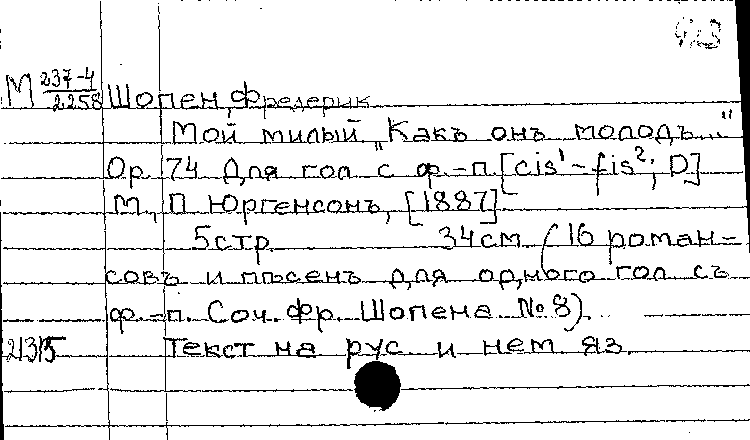 М 237-4/2258 Шопен, Фредерик
Мой милый „Какъ онъ молодъ..."
Op. 74 Для гол с ф.-п. [cis¹-fis²; D]
М., П. Юргенсонъ, [1887]
5 стр. 34 см. (16 роман-
совъ и пѣсенъ для одного гол. съ
ф.-п. Соч. Фр. Шопена № 8).
21315 Текст на рус. и нем. яз.